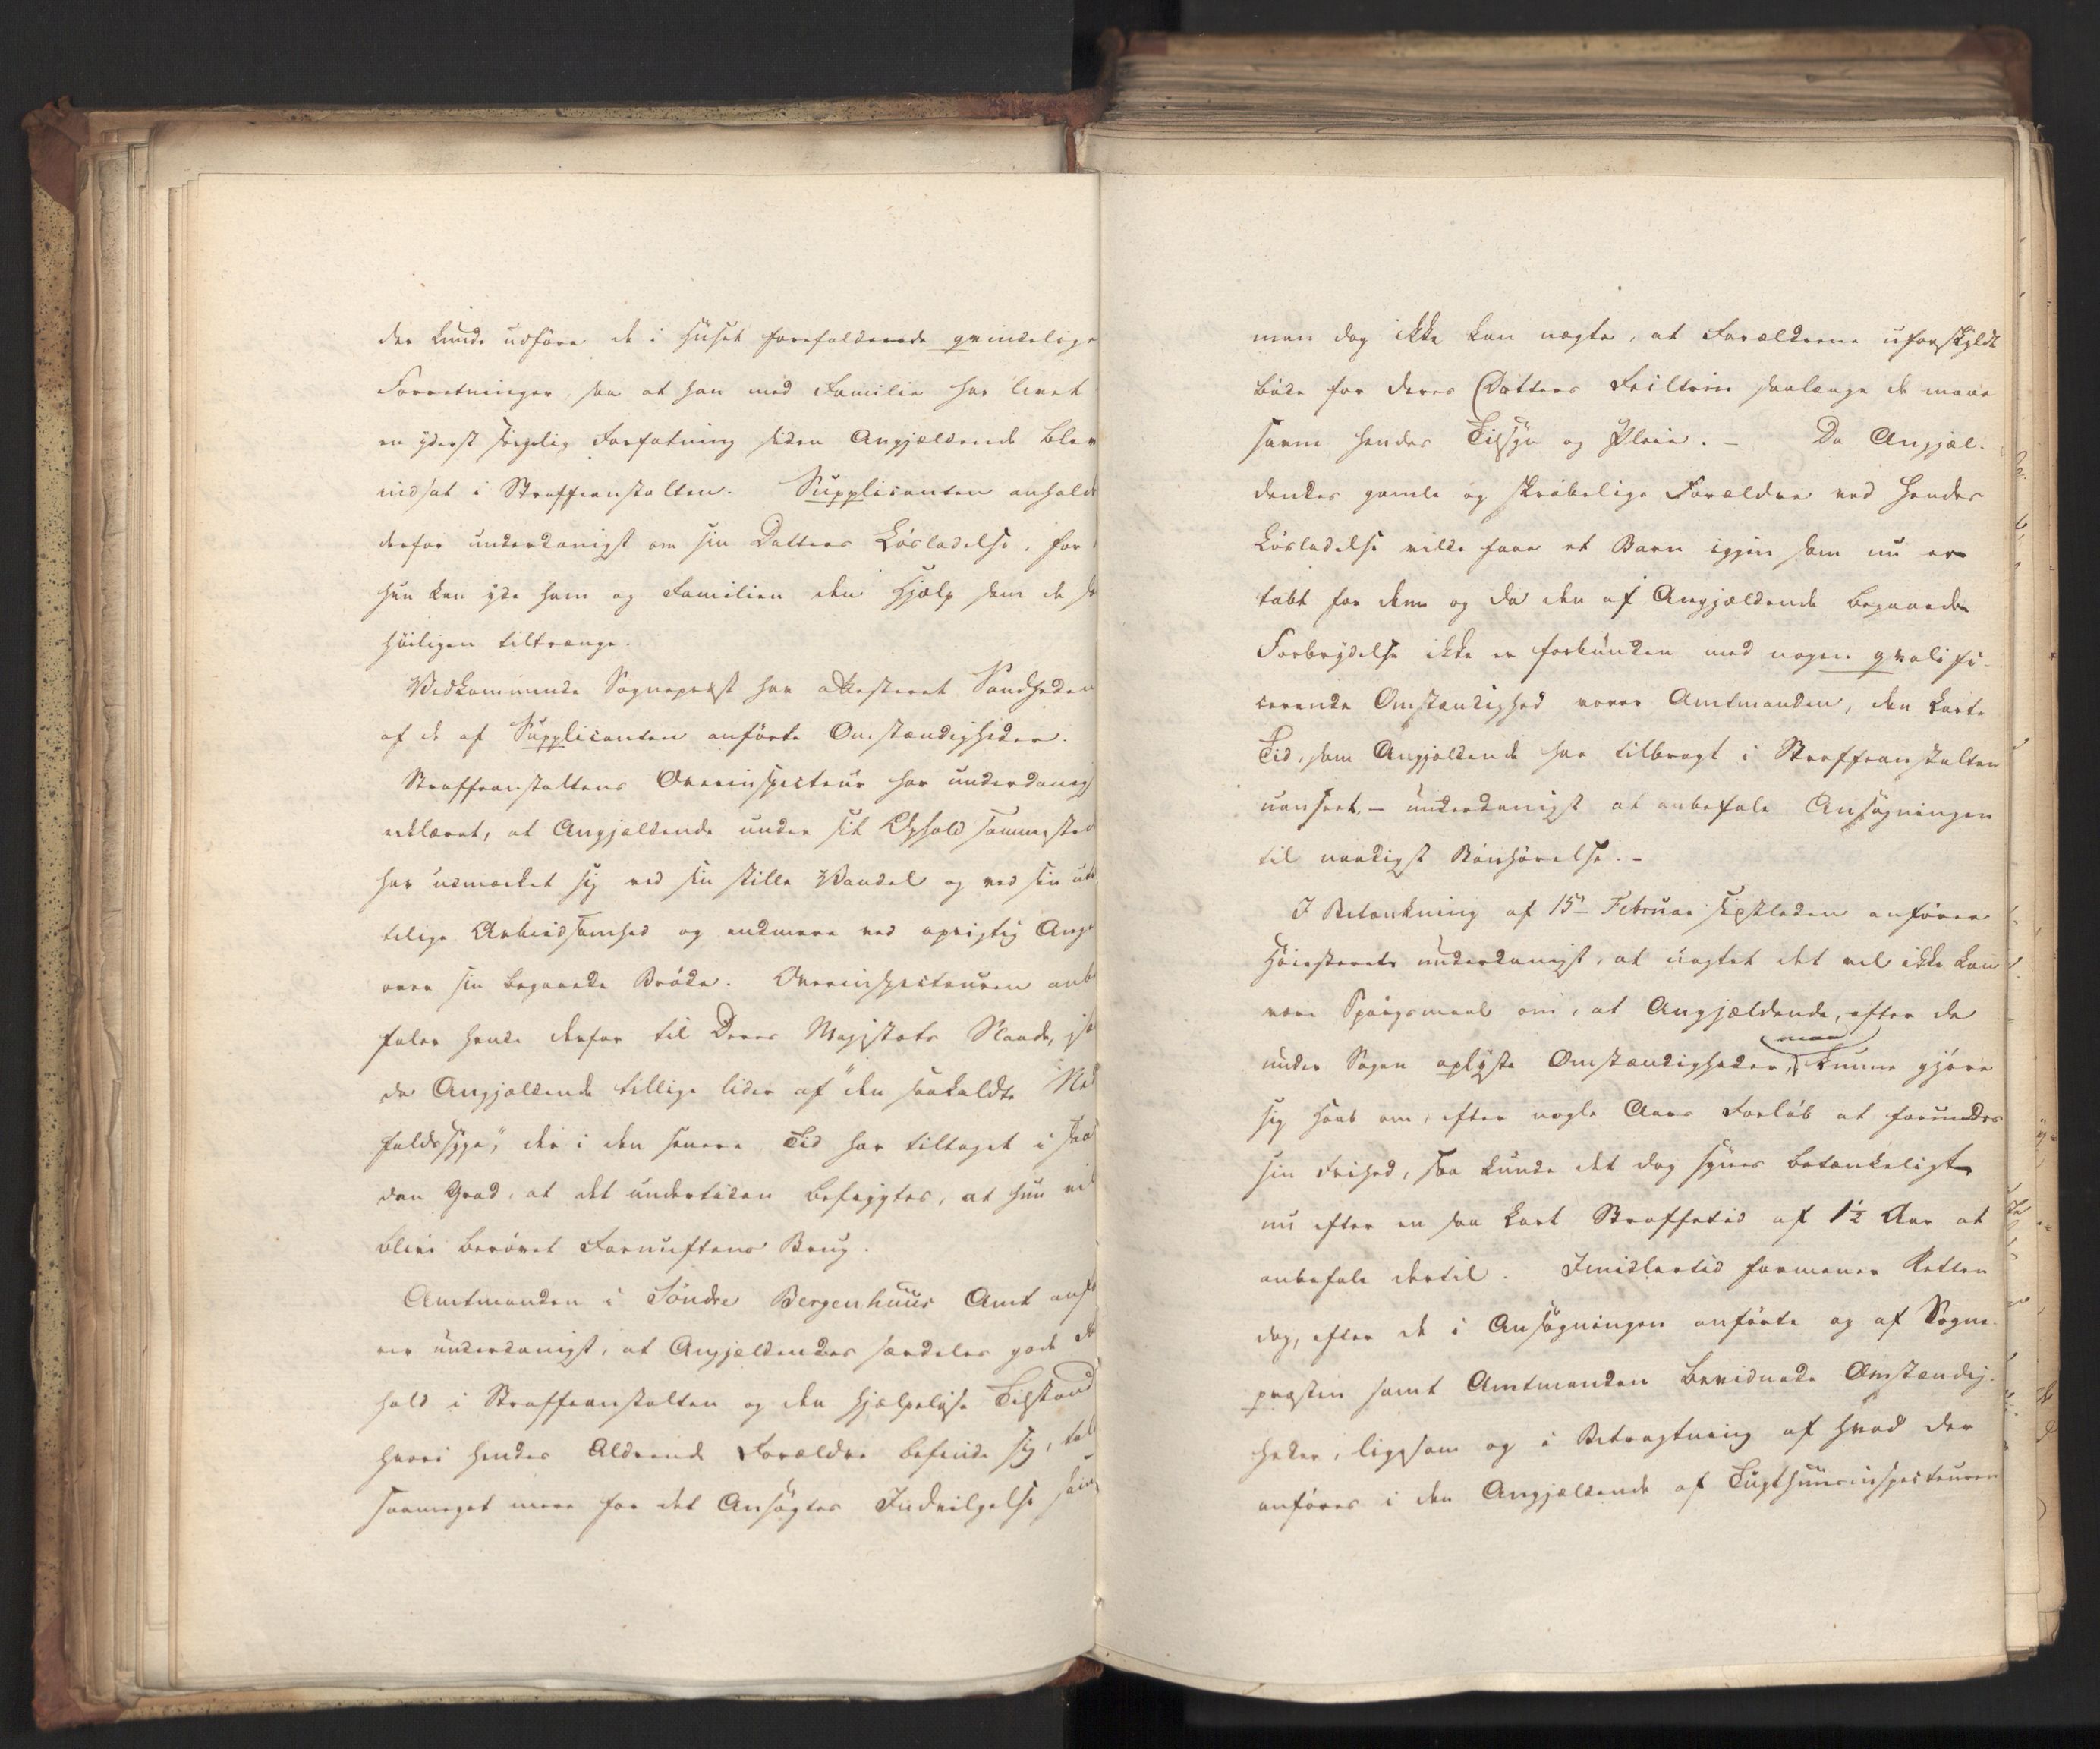 der kunde udföre de i Huset forefaldende qvindelige
Forretninger, saa at han med Familie har levet
en yderst sörgelig Forfatning siden Angjældende blev
indsat i Straffeanstalten. Supplicanten anhold
derfor underdanigst om sin Datters Lösladelse, for
hun kan yde ham og Familien den Hjælp som de
höiligen tiltrænge.
Vedkommende Sognepræst har attesteret Sandheden
af de af Supplicanten anförte Omstændigheder.
Straffeanstaltens Overinspecteur har underdanigst
erklæret, at Angjældende under sit Ophold sammested
har udmærket sig ved sin stille Vandel og ved sin
telige Arbeidsomhed og endmere ved oprigtig Ange
over sin begaaede Bröde. Overinspecteuren anbe
faler hende derfor til Deres Majestæts Naade,
da Angjældende tillige lider af "den saakaldte Ned
faldssyge", der i den senere Tid har tiltaget i saa
dan Grad, at det undertiden befrygtes, at hun vil
blive berövet Fornuftens Brug.
Amtmanden i Söndre Bergenhuus Amt anfö
rer underdanigst, at Angjældendes særdeles gode
hold i Straffeanstalten og den hjælpelöse Tilstand
hvori hendes Aldrende Forældre befinde sig, tal
saameget mere for det Ansögtes Indvilgelse som
man dog ikke kan nægte, at Forældrene uforskyldt
böde for deres Datters Feiltrin saalænge de maae
savne hendes Tilsyn og Pleie. - Da Angjæl-
dendes gamle og skröbelige Forældre ved hendes
Lösladelse vilde faae et Barn igjen som nu er
tabt for dem og da den af Angjældende begaaede
Forbrydelse ikke er forbunden med nogen qvalifi-
cerende Omstændighed vover Amtmanden, den korte
Tid, som Angjældende har tilbragt i Straffeanstalten
uanseet, - underdanigst at anbefale Ansögningen
til naadigst Bönhörelse. -
I Betænkning af 15de Februar sidstleden anförer
Höiesteret underdanigst, at uagtet det vel ikke kan
være Spörgsmaal om, at Angjældende, efter de
maa
under Sagen oplyste Omstændigheder, kunne gjöre
sig Haab om, efter nogle Aars Forlöb at forundes
sin Frihed, saa kunde det dog synes betænkeligt
nu efter en saa kort Straffetid af 1½ Aar at
anbefale dertil. Imidlertid formener Retten
dog, efter de i Ansögningen anförte og af Sogne-
præsten samt Amtmanden bevidnede Omstændig-
heder, ligesom og i Betragtning af hvad der
anföres i den Angjældende af Tugthuusinspecteuren